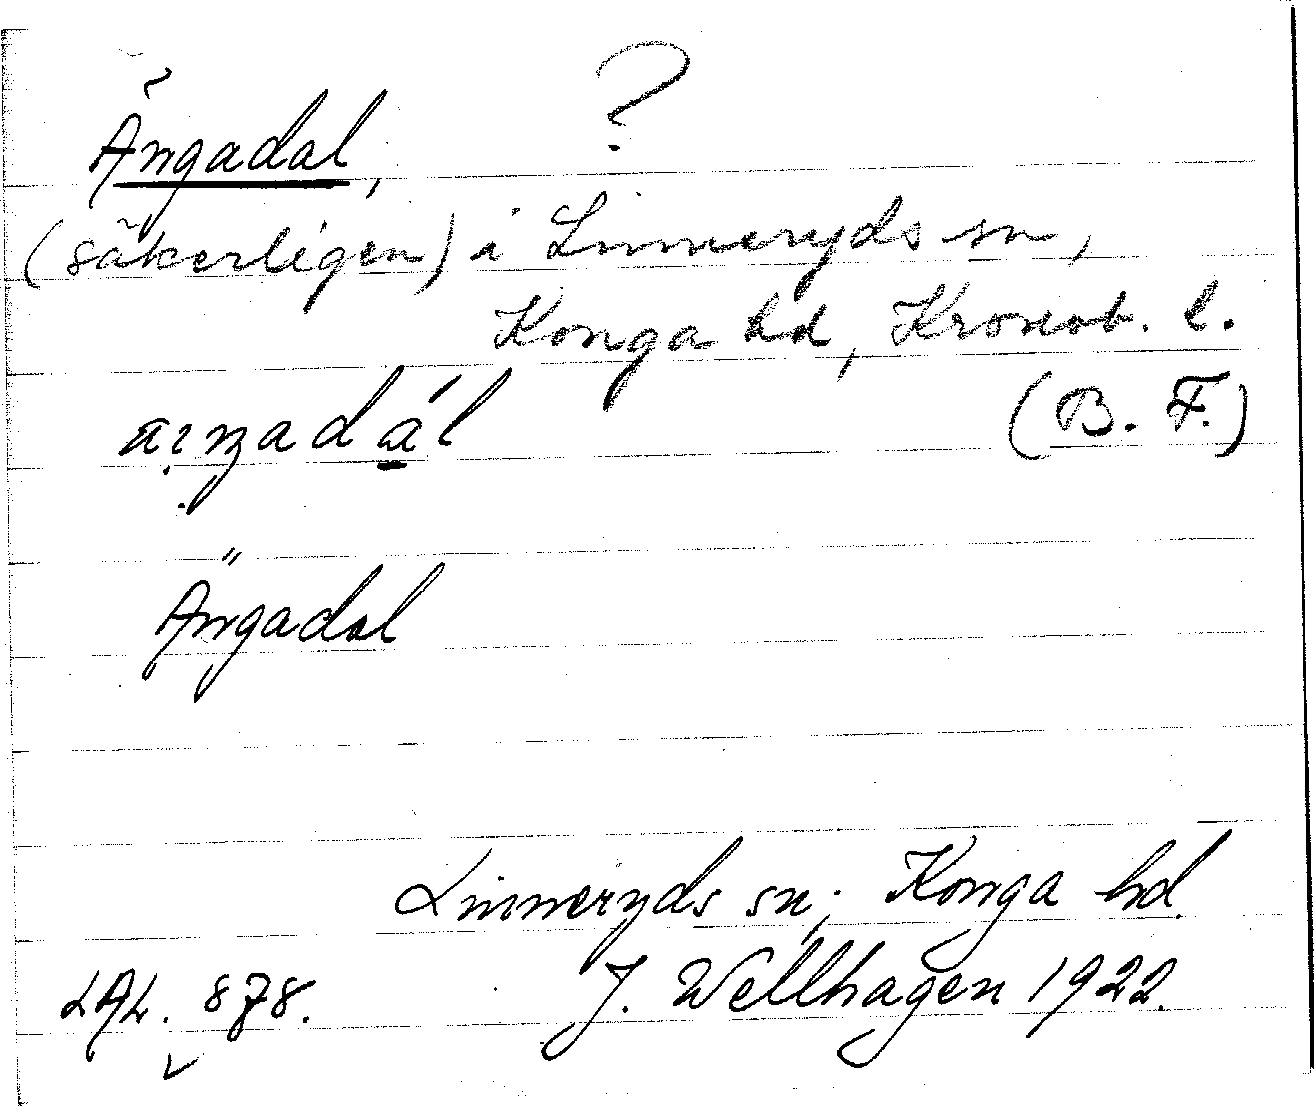 Ängadal, ?
(säkerligen) i Linneryds sn,
Konga hd, Kronob. l.
(B. F.)
Ängadal
Linneryds sn; Konga hd.
LAL. 878. J. Wellhagen 1922.